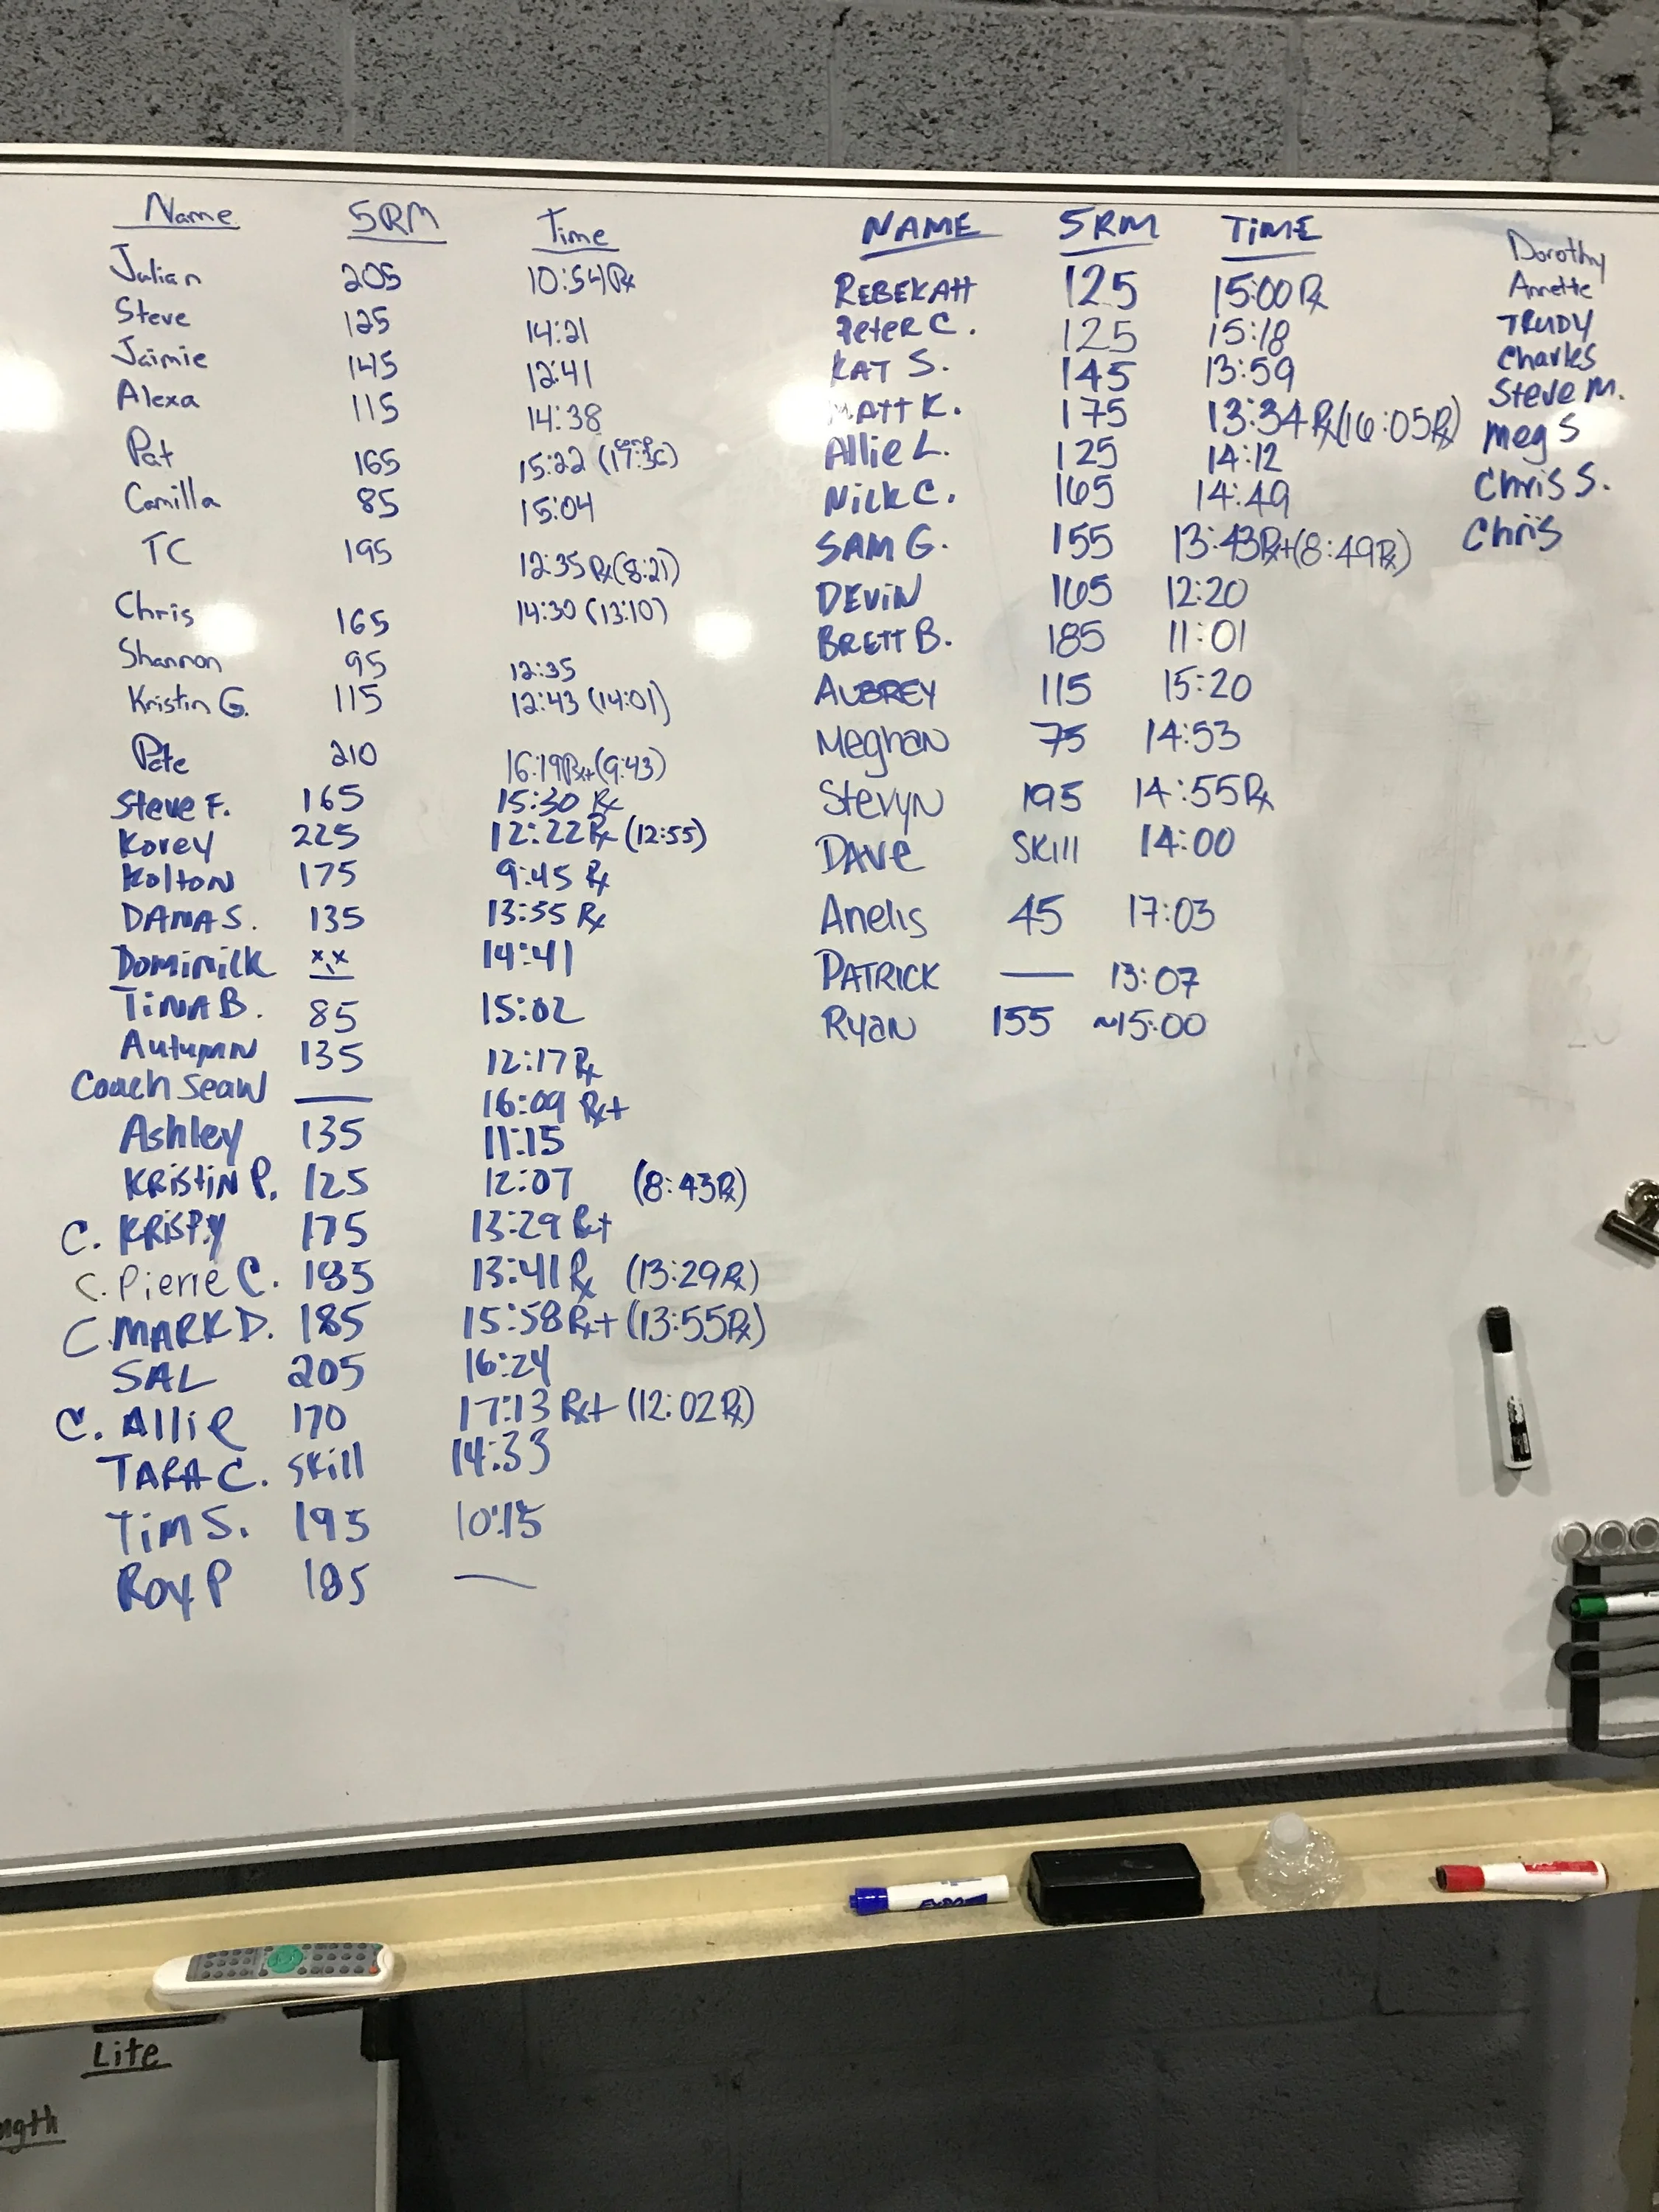 Name 5RM Time
Julian 205 10:54 Rx
Steve 125 14:21
Jaimie 145 12:41
Alexa 115 14:38
Pat 165 15:22 (comp
Camilla 85 15:04
TC 195 12:35 Rx (8:21)
Chris 165 14:30 (13:10)
Shannon 95 12:35
Kristin G. 115 12:43 (14:01)
Pete 210 16:19 Rx+ (9:43)
Steve F. 165 15:30 Rx
Korey 225 12:22 Rx (12:55)
Kolton 175 9:45 Rx
DANA S. 135 13:55 Rx
Dominick x.x 14:41
TiNA B. 85 15:02
Autumn 135 12:17 Rx
Coach Sean — 16:09 Rx+
Ashley 135 11:15
KRistiN P. 125 12:07 (8:43 Rx)
C. KRiSPY 175 13:29 Rx+
C. Pierre C. 185 13:41 Rx (13:29 Rx)
C. MARK D. 185 15:58 Rx+ (13:55 Rx)
SAL 205 16:24
C. Allie 170 17:13 Rx+ (12:02 Rx)
TARA C. Skill 14:33
Tim S. 195 10:15
Roy P 185 —
NAME 5RM TiME
REBEKAH 125 15:00 Rx
Peter C. 125 15:18
KAT S. 145 13:59
MATT K. 175 13:34 Rx (16:05 Rx)
Allie L. 125 14:12
Nick C. 165 14:49
SAM G. 155 13:43 Rx+ (8:49 Rx)
DEViN 165 12:20
BRETT B. 185 11:01
AUBREY 115 15:20
Meghan 75 14:53
Stevyn 195 14:55 Rx
DAVe Skill 14:00
Anelis 45 17:03
PATRICK — 13:07
Ryan 155 ~15:00
Dorothy
Annette
TRUDY
Charles
Steve M.
Meg S
Chris S.
Chris
EXPO
Lite
ngth